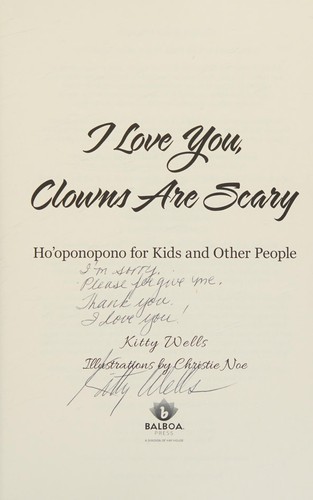 I Love You,
Clowns Are Scary
Ho'oponopono for Kids and Other People
I'm sorry.
Please forgive me.
Thank you.
I love you!
Kitty Wells
Illustrations by Christie Noe
Kitty Wells
b
BALBOA.
PRESS
A DIVISION OF HAY HOUSE